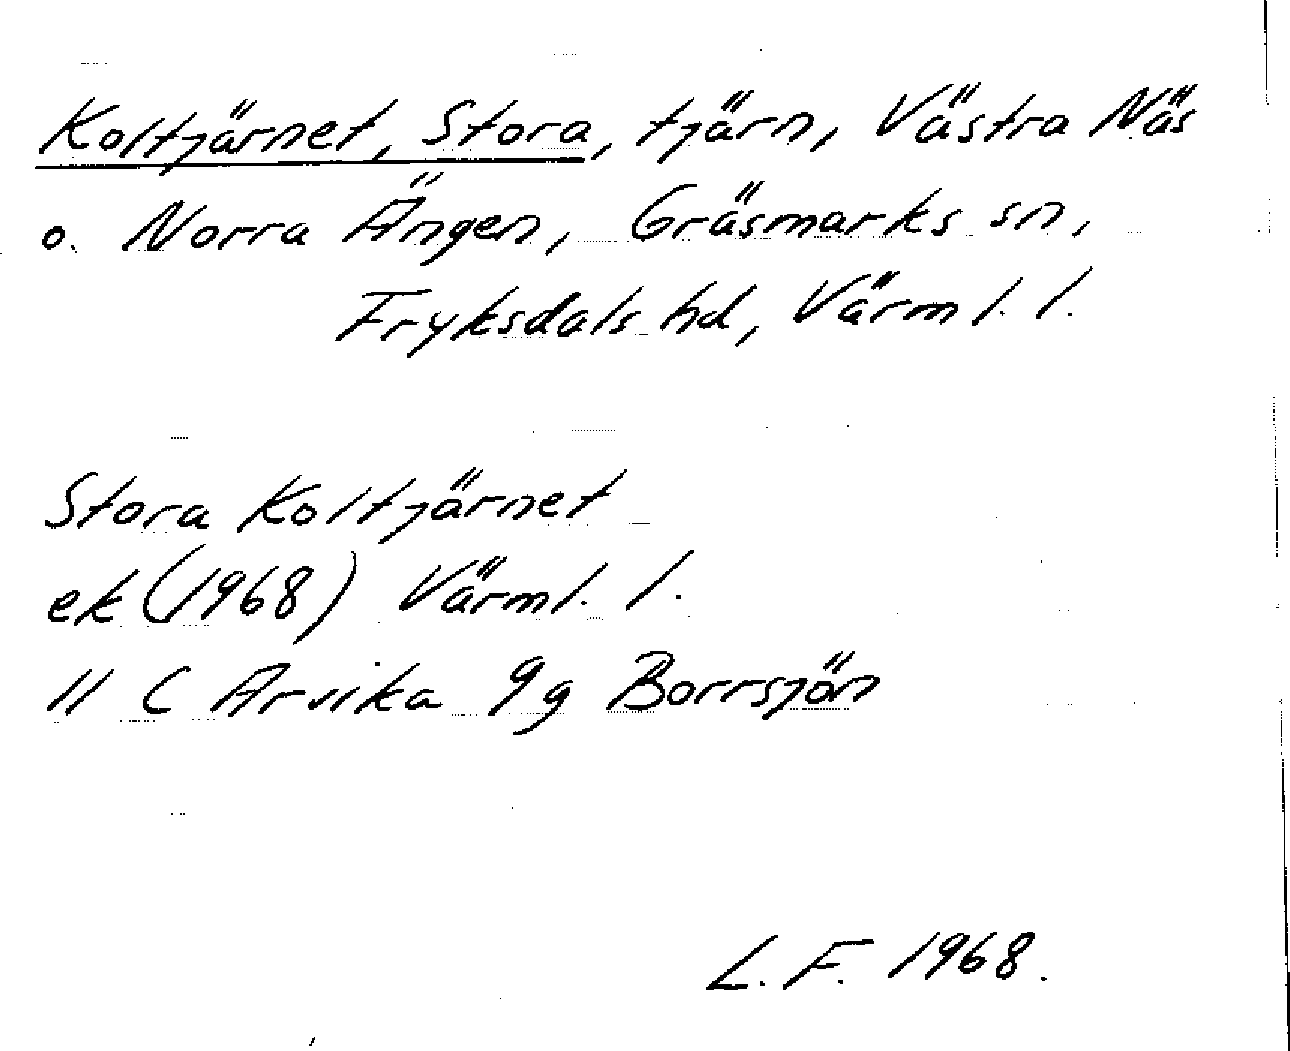 Koltjärnet, Stora, tjärn, Västra Näs
o. Norra Ängen, Gräsmarks sn,
Fryksdals hd, Värml. l.
Stora Koltjärnet
ek (1968) Värml. l.
11 C Arvika 9g Borrsjön
L. F. 1968.